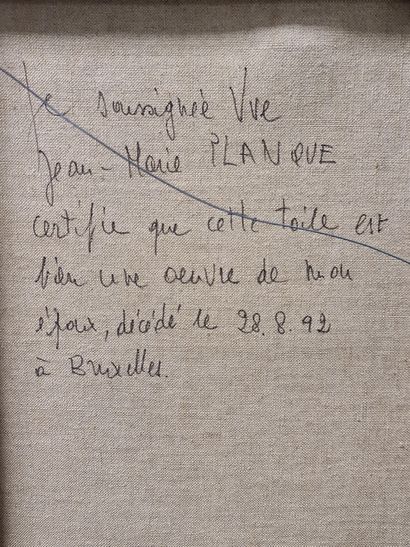 Je soussignée Vve
Jean-Marie PLANQUE
certifie que cette toile est
bien une oeuvre de mon
époux, décédé le 28.8.92
à Bruxelles.